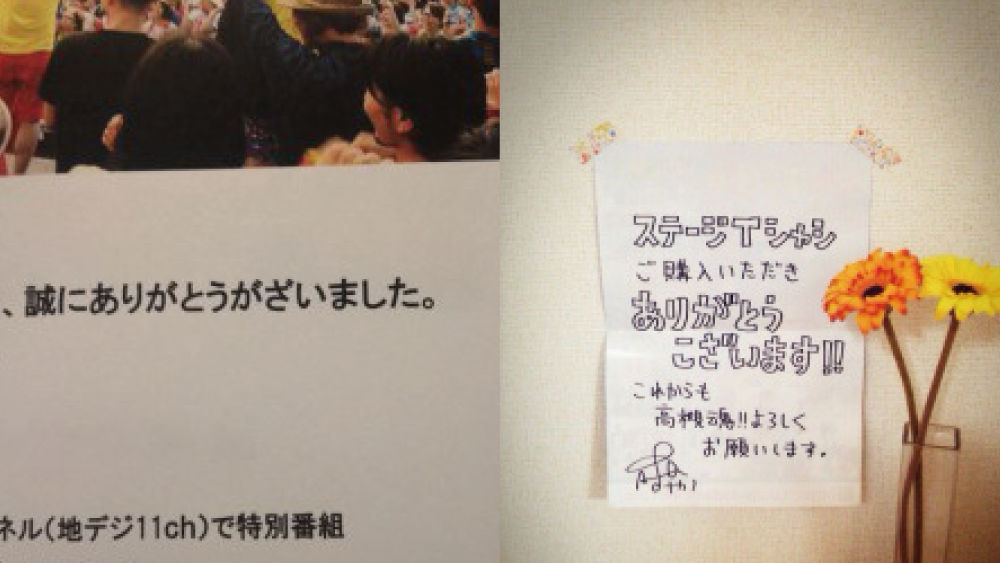 、誠にありがとうがざいました。
ネル(地デジ11ch)で特別番組
ステージTシャツ
ご購入いただき
ありがとう
ございます!!
これからも
高槻魂!!よろしく
お願いします。